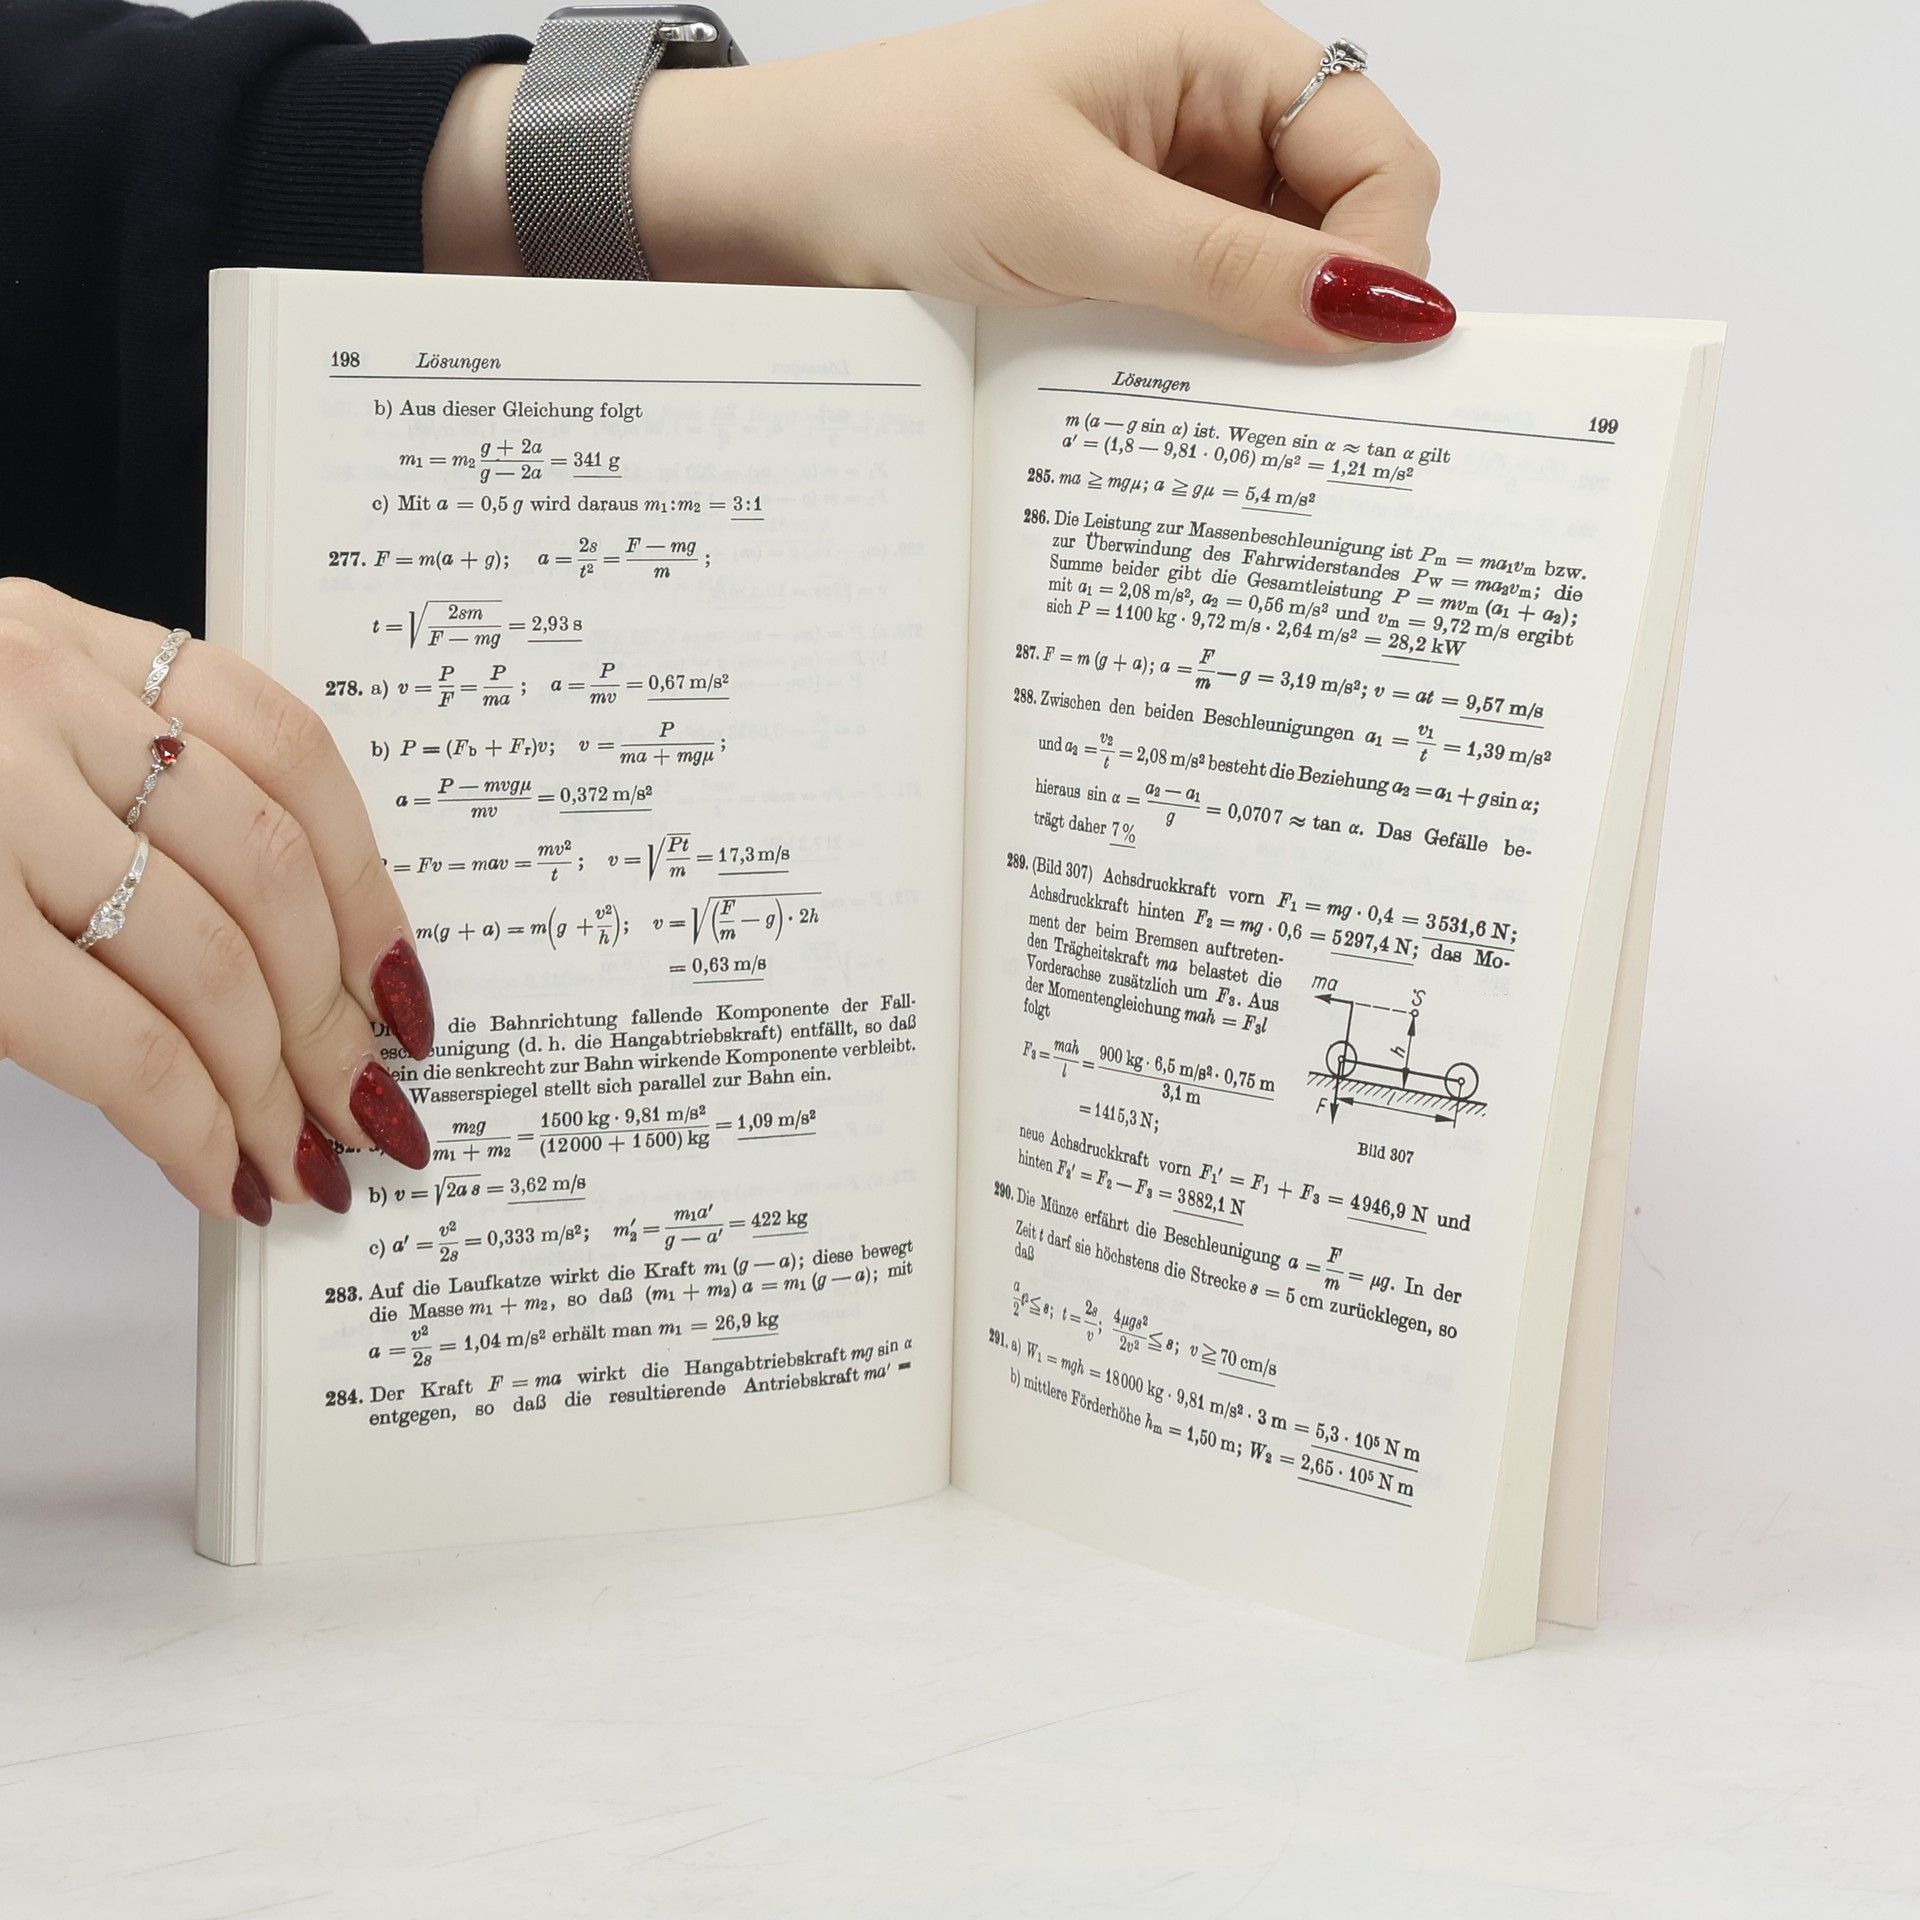 198 Lösungen
b) Aus dieser Gleichung folgt
m₁ = m₂ (g + 2a)/(g — 2a) = 341 g
c) Mit a = 0,5 g wird daraus m₁:m₂ = 3:1
277. F = m(a + g); a = 2s/t² = (F — mg)/m ;
t = √(2sm/(F — mg)) = 2,93 s
278. a) v = P/F = P/ma ; a = P/mv = 0,67 m/s²
b) P = (F_b + F_r)v; v = P/(ma + mgμ) ;
a = (P — mvgμ)/mv = 0,372 m/s²
= Fv = mav = mv²/t ; v = √(Pt/m) = 17,3 m/s
m(g + a) = m(g + v²/h); v = √((F/m — g) · 2h)
= 0,63 m/s
die Bahnrichtung fallende Komponente der Fall-
eunigung (d. h. die Hangabtriebskraft) entfällt, so daß
ein die senkrecht zur Bahn wirkende Komponente verbleibt.
Wasserspiegel stellt sich parallel zur Bahn ein.
m₂g/(m₁ + m₂) = (1500 kg · 9,81 m/s²)/((12000 + 1500) kg) = 1,09 m/s²
b) v = √(2a s) = 3,62 m/s
c) a′ = v²/2s = 0,333 m/s²; m₂′ = m₁a′/(g — a′) = 422 kg
283. Auf die Laufkatze wirkt die Kraft m₁ (g — a); diese bewegt
die Masse m₁ + m₂, so daß (m₁ + m₂) a = m₁ (g — a); mit
a = v²/2s = 1,04 m/s² erhält man m₁ = 26,9 kg
284. Der Kraft F = ma wirkt die Hangabtriebskraft mg sin α
entgegen, so daß die resultierende Antriebskraft ma′ =
Lösungen 199
m (a — g sin α) ist. Wegen sin α ≈ tan α gilt
a′ = (1,8 — 9,81 · 0,06) m/s² = 1,21 m/s²
285. ma ≧ mgμ; a ≧ gμ = 5,4 m/s²
286. Die Leistung zur Massenbeschleunigung ist P_m = ma₁v_m bzw.
zur Überwindung des Fahrwiderstandes P_W = ma₂v_m; die
Summe beider gibt die Gesamtleistung P = mv_m (a₁ + a₂);
mit a₁ = 2,08 m/s², a₂ = 0,56 m/s² und v_m = 9,72 m/s ergibt
sich P = 1100 kg · 9,72 m/s · 2,64 m/s² = 28,2 kW
287. F = m (g + a); a = F/m — g = 3,19 m/s²; v = at = 9,57 m/s
288. Zwischen den beiden Beschleunigungen a₁ = v₁/t = 1,39 m/s²
und a₂ = v₂/t = 2,08 m/s² besteht die Beziehung a₂ = a₁ + g sin α;
hieraus sin α = (a₂ — a₁)/g = 0,0707 ≈ tan α. Das Gefälle be-
trägt daher 7%
289. (Bild 307) Achsdruckkraft vorn F₁ = mg · 0,4 = 3531,6 N;
Achsdruckkraft hinten F₂ = mg · 0,6 = 5297,4 N; das Mo-
ment der beim Bremsen auftreten-
den Trägheitskraft ma belastet die
Vorderachse zusätzlich um F₃. Aus
der Momentengleichung mah = F₃l
folgt
F₃ = mah/l = (900 kg · 6,5 m/s² · 0,75 m)/3,1 m
= 1415,3 N;
ma
S
h
F
l
Bild 307
neue Achsdruckkraft vorn F₁′ = F₁ + F₃ = 4946,9 N und
hinten F₂′ = F₂ — F₃ = 3882,1 N
290. Die Münze erfährt die Beschleunigung a = F/m = μg. In der
Zeit t darf sie höchstens die Strecke s = 5 cm zurücklegen, so
daß
a/2 t² ≦ s; t = 2s/v; 4μgs²/2v² ≦ s; v ≧ 70 cm/s
291. a) W₁ = mgh = 18000 kg · 9,81 m/s² · 3 m = 5,3 · 10⁵ N m
b) mittlere Förderhöhe h_m = 1,50 m; W₂ = 2,65 · 10⁵ N m